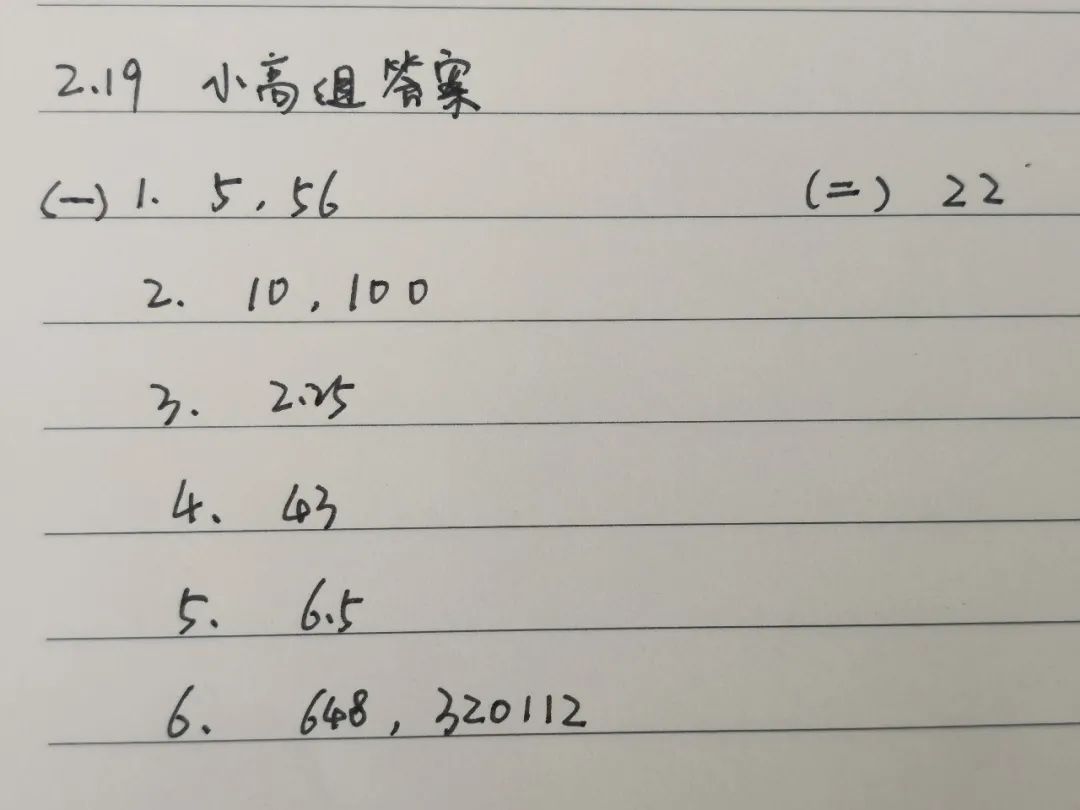 2.19 小高组答案
(一) 1. 5, 56 (二) 22
2. 10, 100
3. 2.25
4. 43
5. 6.5
6. 648, 320112